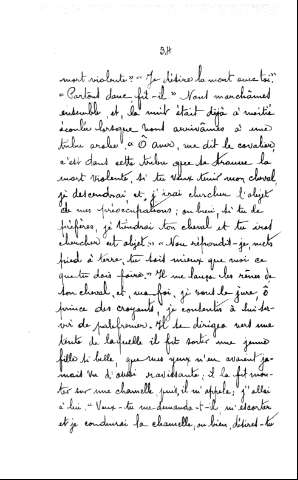 34
mort violente." "Je désire la mort avec toi."
"Partons donc fit-il" Nous marchâmes
ensemble et, la nuit était déjà à moitié
écoulée lorsque nous arrivâmes à une
tribu arabe. "Ô amr, me dit le cavalier
c'est dans cette tribu que se trouve la
mort violente, si tu veux tenir mon cheval
je descendrai et, j'irai chercher l'objet
de mes préoccupations; ou bien, si tu le
préfères, je tiendrai ton cheval et tu iras
chercher cet objet." "Non répondis-je, mets
pied à terre, tu sais mieux que moi ce
que tu dois faire." Il me lança les rênes de
son cheval et, ma foi, je vous le jure, ô
prince des croyants, je consentis à lui ser-
vir de palefrenier. Il se dirigea vers une
tente de laquelle il fit sortir une jeune
fille si belle, que mes yeux n'en avaient ja-
mais vu d'aussi ravissante; il la fit mon-
ter sur une chamelle puis, il m'appela; j'allai
à lui. "Veux-tu me demanda-t-il m'escorter
et je conduirai la chamelle, ou bien, désires-tu